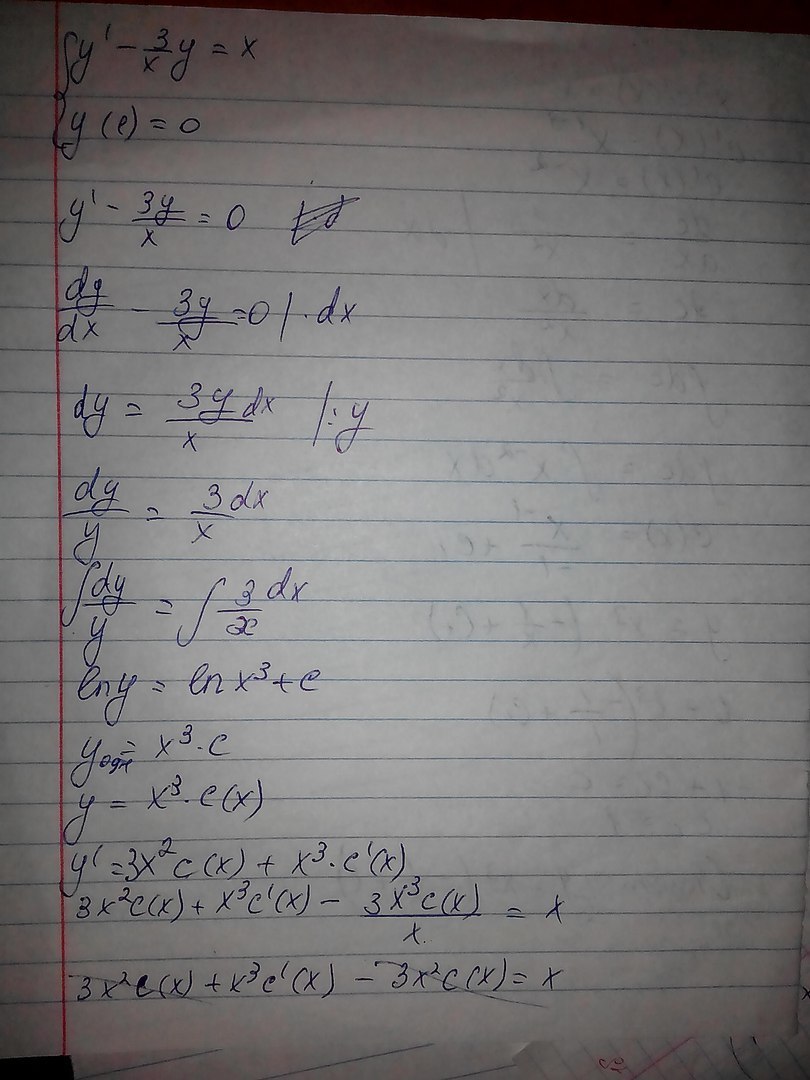 { y' - 3/x y = x
y(e) = 0
y' - 3y/x = 0
dy/dx - 3y/x = 0 | · dx
dy = 3y/x dx | : y
dy/y = 3/x dx
∫ dy/y = ∫ 3/x dx
ln y = ln x³ + c
y одн = x³ · c
y = x³ · c(x)
y' = 3x² c(x) + x³ · c'(x)
3x²c(x) + x³c'(x) - 3x³c(x)/x = x
3x²c(x) + x³c'(x) - 3x²c(x) = x